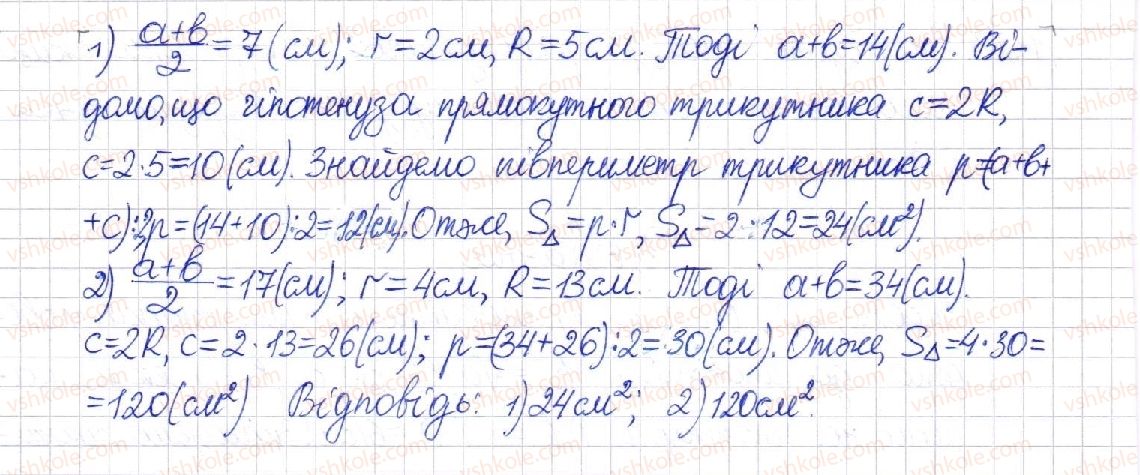 1) (a+b)/2 = 7 (см); r = 2 см, R = 5 см. Тоді a+b = 14 (см). Ві-
домо, що гіпотенуза прямокутного трикутника c = 2R,
c = 2·5 = 10 (см). Знайдемо півпериметр трикутника p = (a+b+
+c):2, p = (14+10):2 = 12 (см). Отже, S△ = p·r, S△ = 2·12 = 24 (см²).
2) (a+b)/2 = 17 (см); r = 4 см, R = 13 см. Тоді a+b = 34 (см).
c = 2R, c = 2·13 = 26 (см); p = (34+26):2 = 30 (см). Отже, S△ = 4·30 =
= 120 (см²) Відповідь: 1) 24 см²; 2) 120 см².